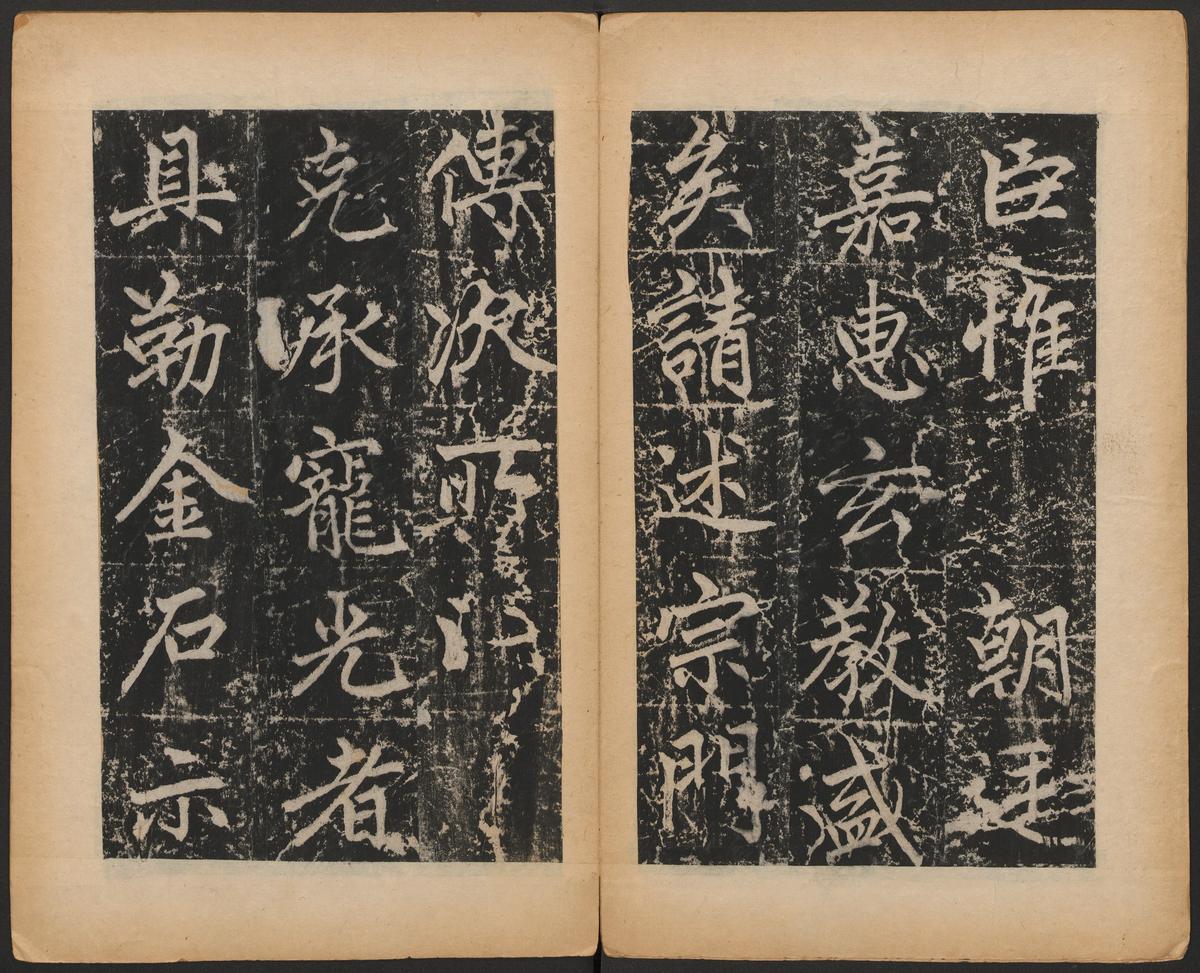 臣惟朝廷
嘉惠玄教盛
矣請述宗門
傳次所以
克承寵光者
具勒金石示